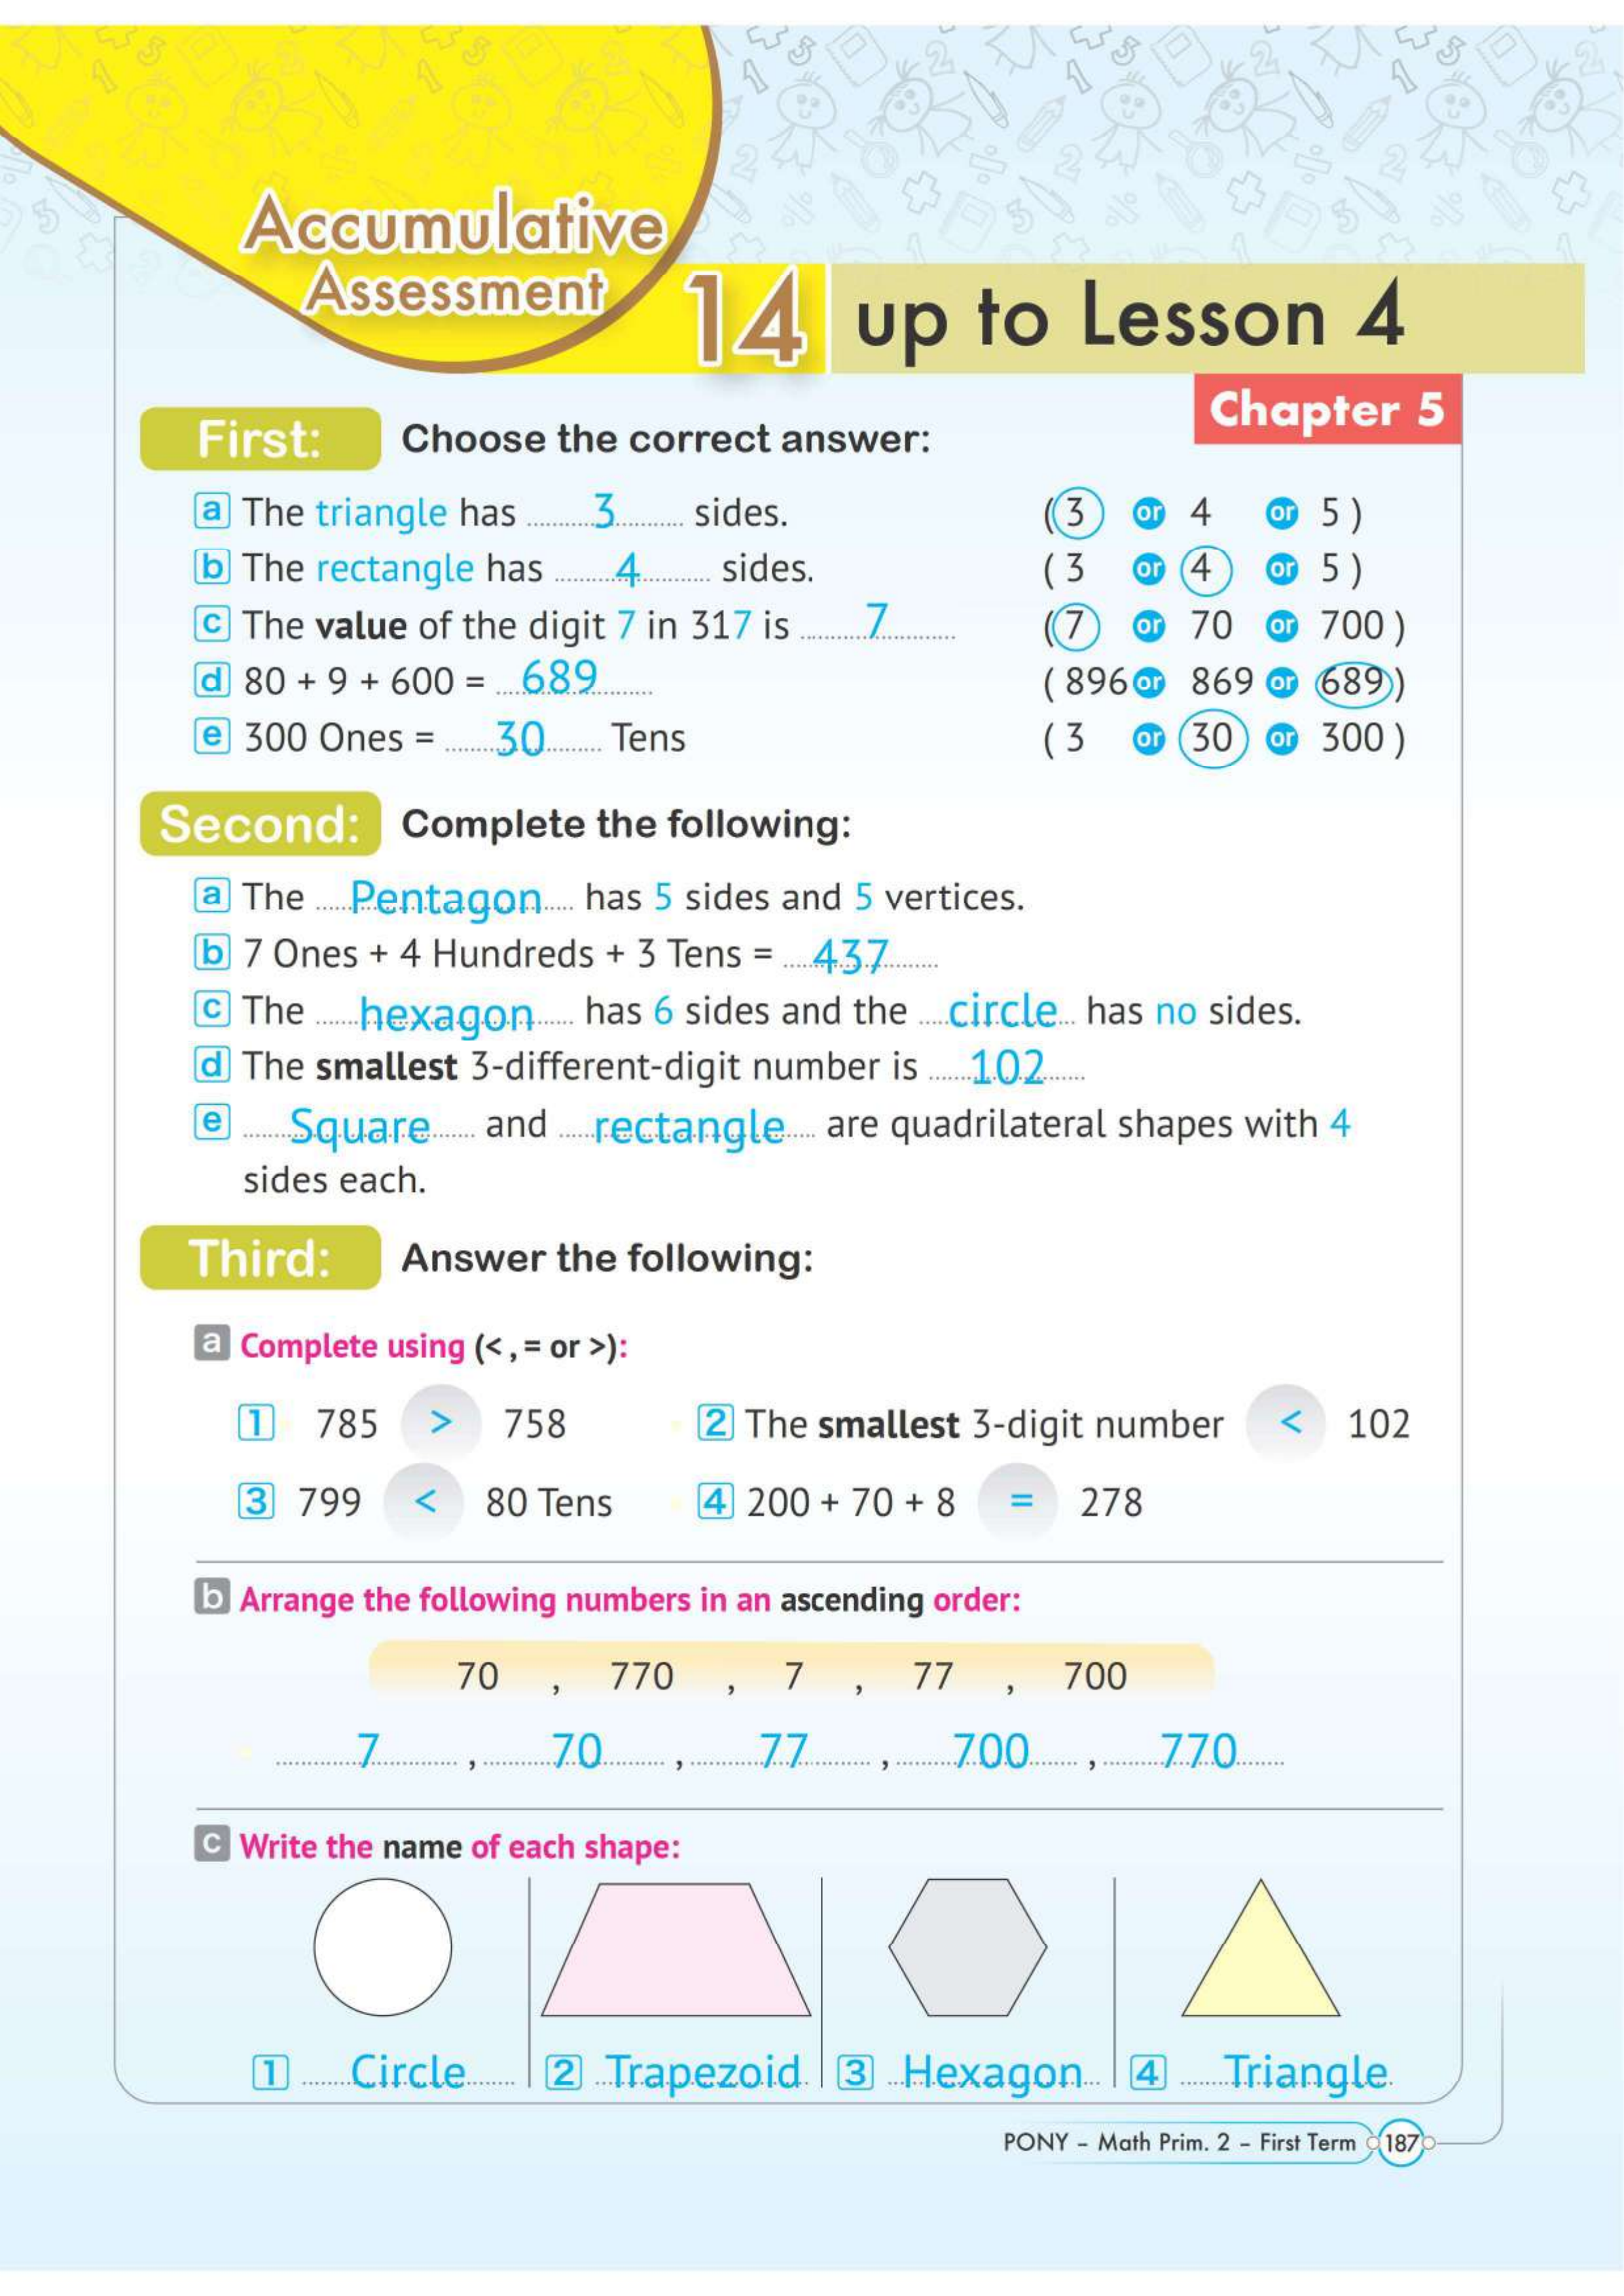 Accumulative
Assessment 14 up to Lesson 4
Chapter 5
First: Choose the correct answer:
a The triangle has ..........3.......... sides. (3 or 4 or 5)
b The rectangle has ..........4.......... sides. (3 or 4 or 5)
c The value of the digit 7 in 317 is ..........7.......... (7 or 70 or 700)
d 80 + 9 + 600 = ...689......... (896 or 869 or 689)
e 300 Ones = ........30......... Tens (3 or 30 or 300)
Second: Complete the following:
a The .....Pentagon..... has 5 sides and 5 vertices.
b 7 Ones + 4 Hundreds + 3 Tens = ....437.......
c The ......hexagon...... has 6 sides and the ....circle... has no sides.
d The smallest 3-different-digit number is ......102......
e ......Square...... and .....rectangle.... are quadrilateral shapes with 4
sides each.
Third: Answer the following:
a Complete using (< , = or >):
1 785 > 758 2 The smallest 3-digit number < 102
3 799 < 80 Tens 4 200 + 70 + 8 = 278
b Arrange the following numbers in an ascending order:
70 , 770 , 7 , 77 , 700
............7............ , ..........70.......... , ..........77.......... , ........700........ , ........770........
c Write the name of each shape:
1 ......Circle...... 2 ..Trapezoid. 3 ..Hexagon.. 4 ......Triangle.
PONY – Math Prim. 2 – First Term 187